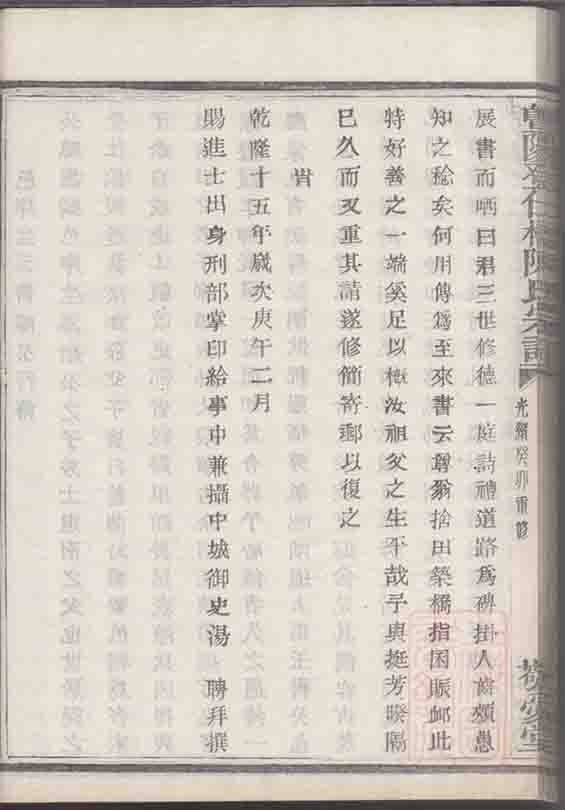 陳氏宗譜
光緒癸卯重修
展書而哂曰君三世修德一庭詩禮道路爲碑掛人齒頰愚
知之稔矣何用傳爲至來書云尊翁捨田築橋指囷賑卹此
特好善之一端奚足以概汝祖父之生平哉予與挺芳暌隔
已久而又重其請遂修簡寄郵以復之
旹
乾隆十五年歲次庚午二月
賜進士出身刑部掌印給事中兼攝中城御史湯 聘拜撰